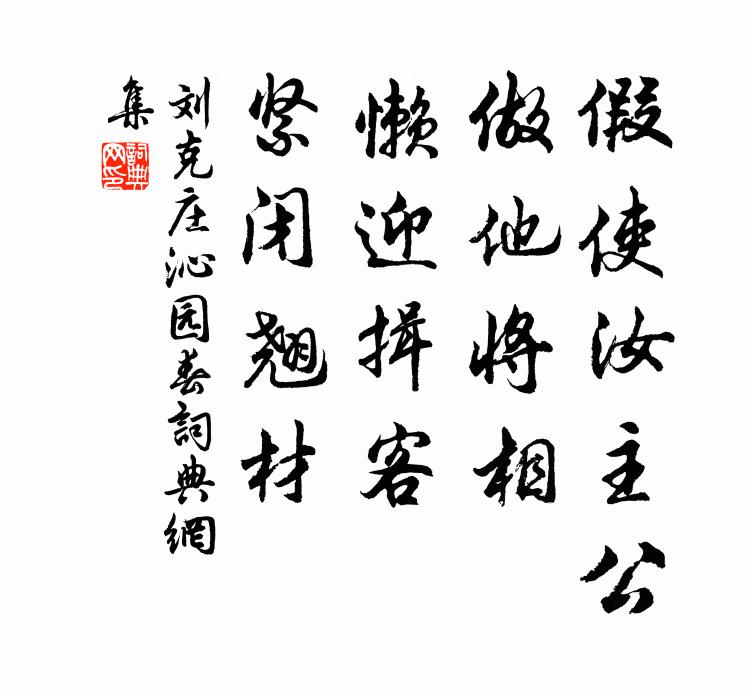 假使汝主公
做他将相
懒迎揖客
紧闭翘材
刘克庄沁园春詞典網
集
詞典
网印